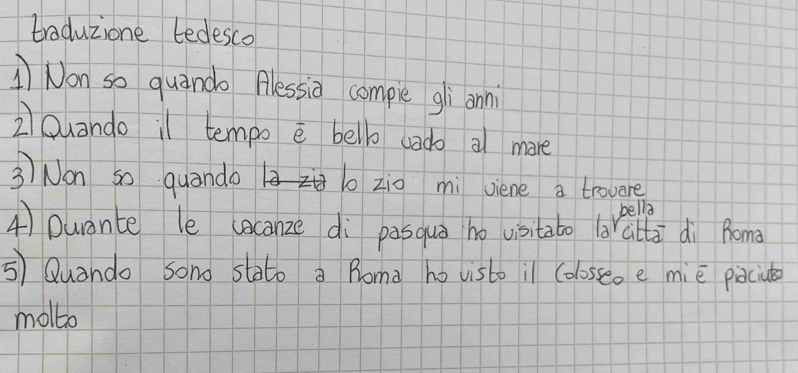 traduzione tedesco
1) Non so quando Alessia compie gli anni
2) Quando il tempo è bello vado al mare
3) Non so quando la zia lo zio mi viene a trovare
4) Durante le vacanze di pasqua ho visitato la bella città di Roma
5) Quando sono stato a Roma ho visto il Colosseo e mi è piaciuto
molto